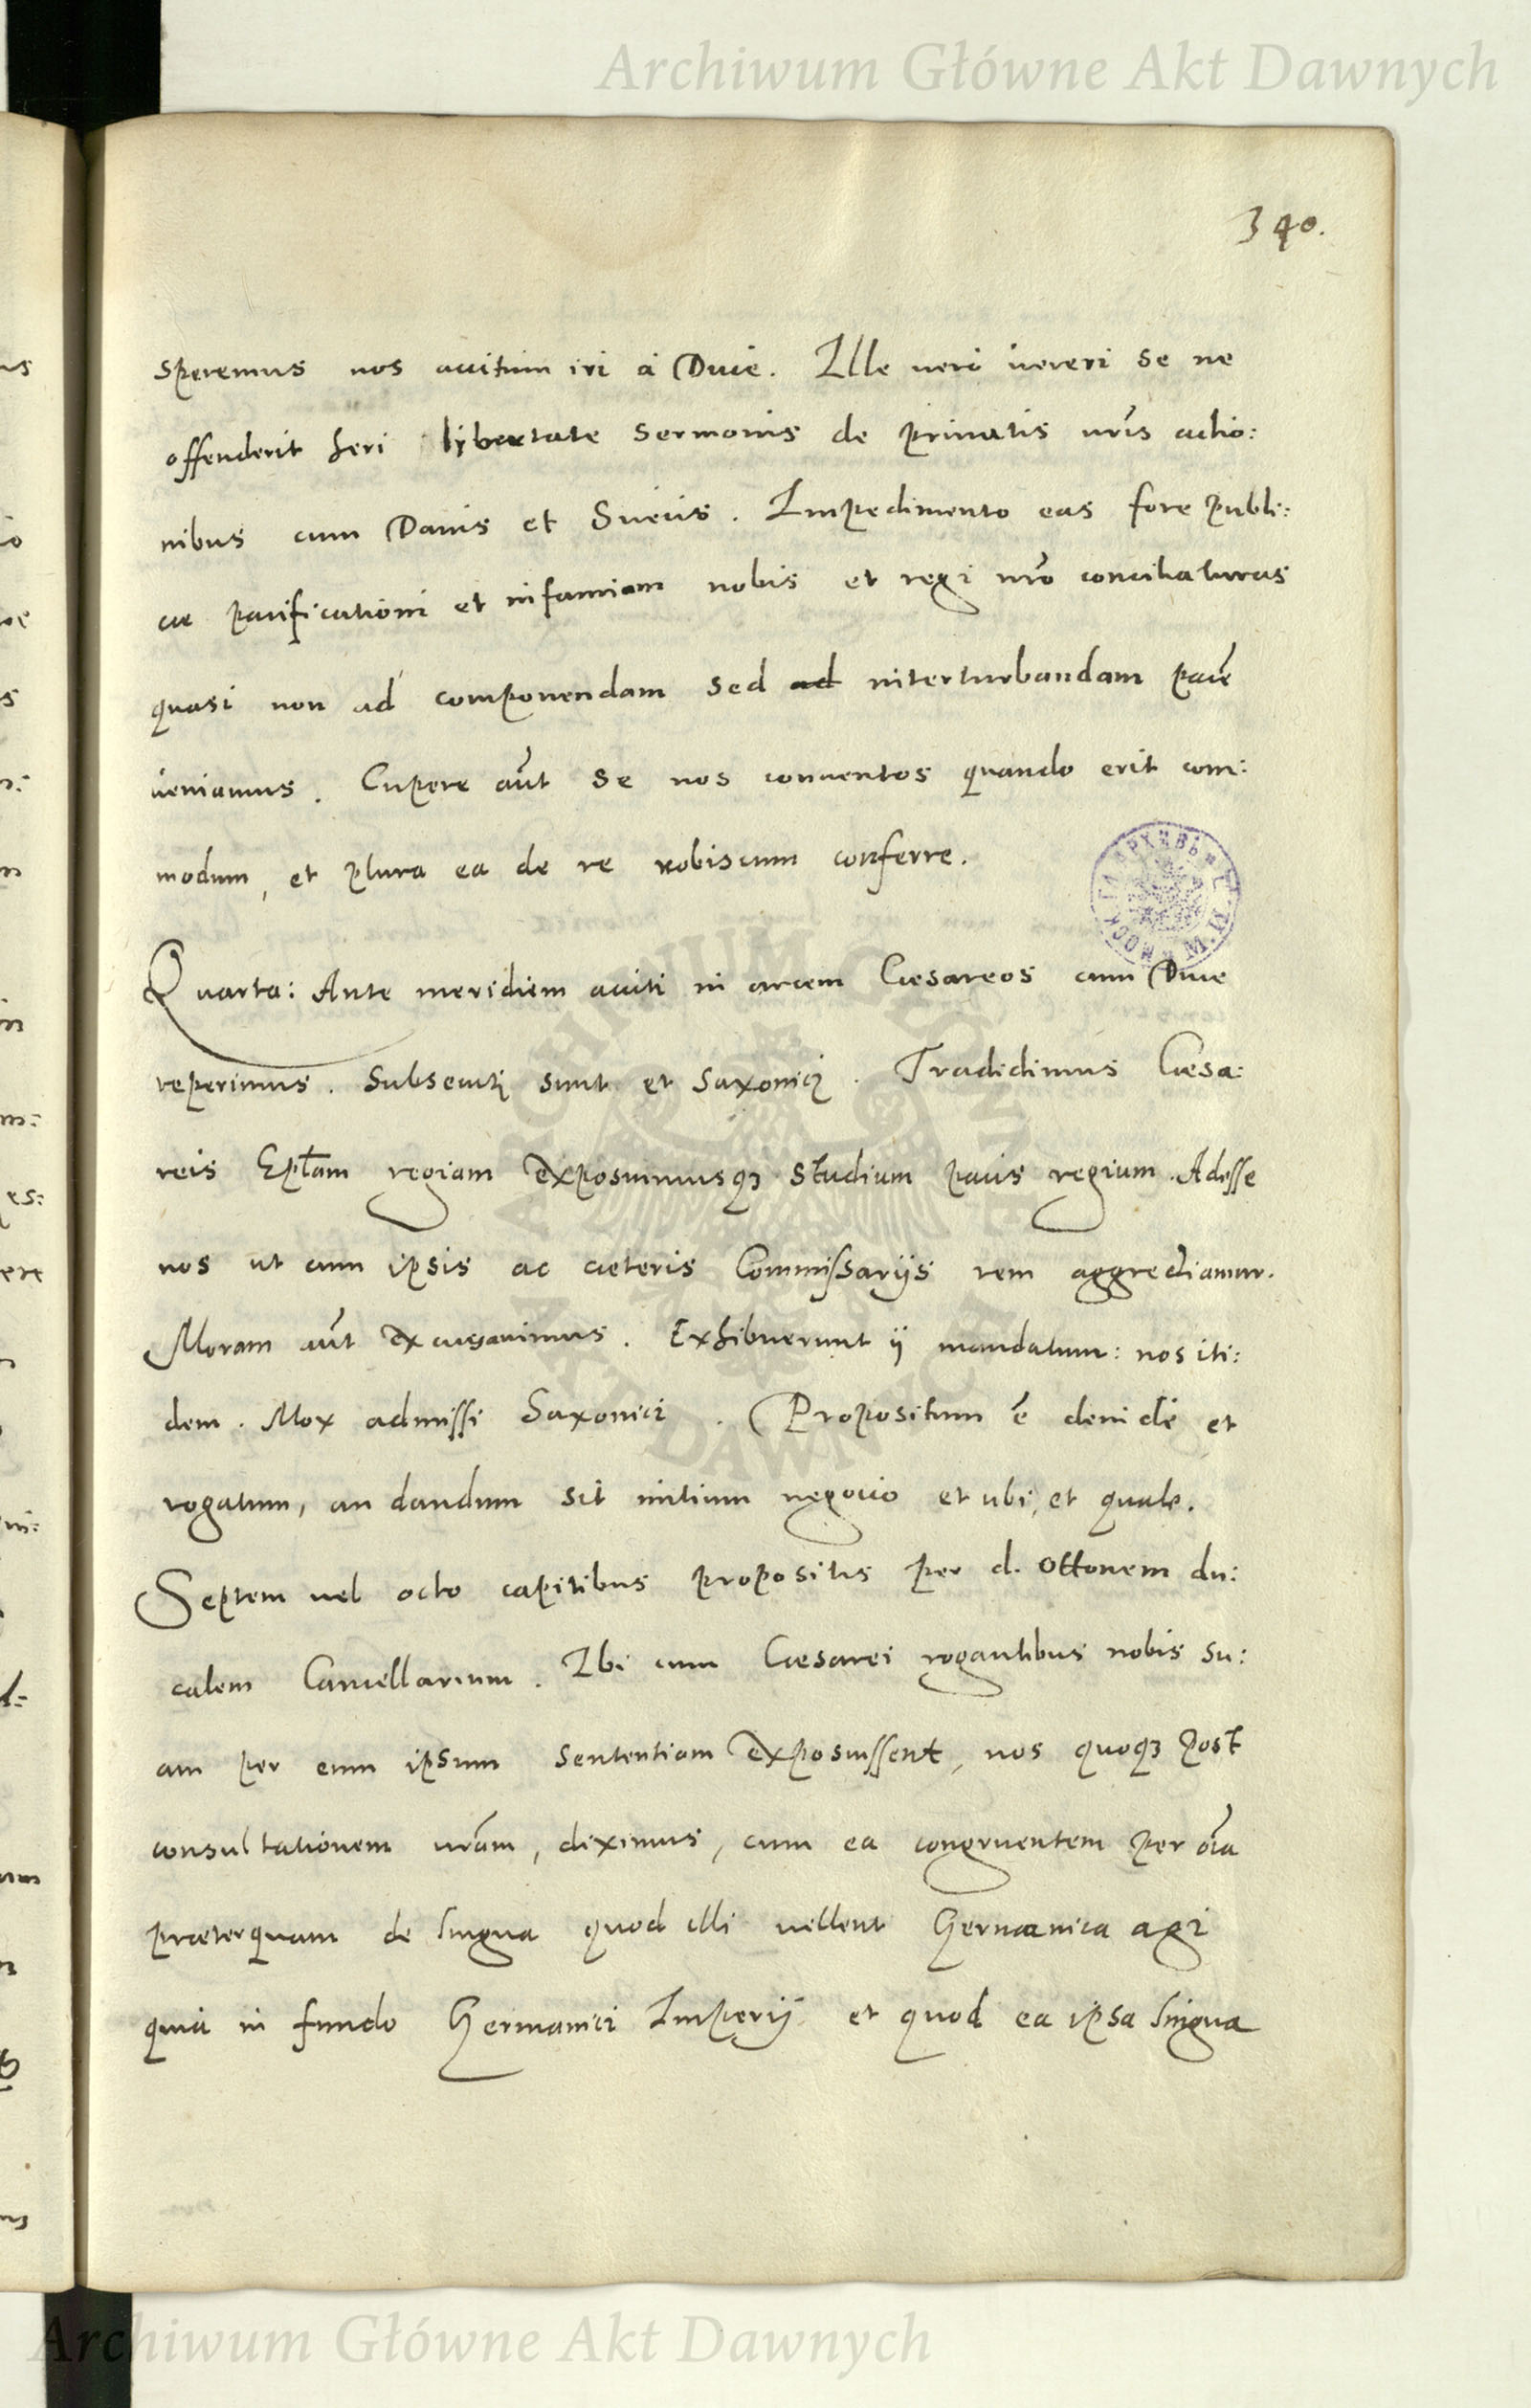 Archiwum Główne Akt Dawnych
340.
speremus nos accitum iri à Duce. Ille vero vereri se ne
offenderit heri libertate sermonis de privatis nr̃is actio:
nibus cum Danis et Suecis. Impedimento eas fore publi:
cae pacificationi et infamiam nobis et regi nr̃o conciliaturas
quasi non ad componendam sed ad interturbandam pacẽ
veniamus. Cupere aũt se nos conventos quando erit com:
modum, et plura ea de re nobiscum conferre.
Quarta: Ante meridiem acciti in arcem Caesareos cum Duce
reperimus. Subsecuti sunt et Saxonici. Tradidimus Caesa:
reis Ep̃lam regiam exposuimusq3 studium pacis regium. Adesse
nos ut cum ipsis ac caeteris Commissarijs rem aggrediamur.
Moram aũt excusavimus. Exhibuerunt ij mandatum: nos iti:
dem. Mox admissi Saxonici. Propositum ẽ deinde et
rogatum, an dandum sit initium negocio et ubi, et quale.
Septem vel octo capitibus propositis per d. Ottonem du:
calem Cancellarium. Ibi cum Caesarei rogantibus nobis su:
am per eum ipsum sententiam exposuissent, nos quoq3 post
consultationem nr̃am, diximus, cum ea congruentem per oĩa
praeterquam de lingua quod illi vellent Germanica agi
quia in fundo Germanici Imperij et quod ea ipsa lingua
ARCHIWUM GŁÓWNE
AKT DAWNYCH
Archiwum Główne Akt Dawnych